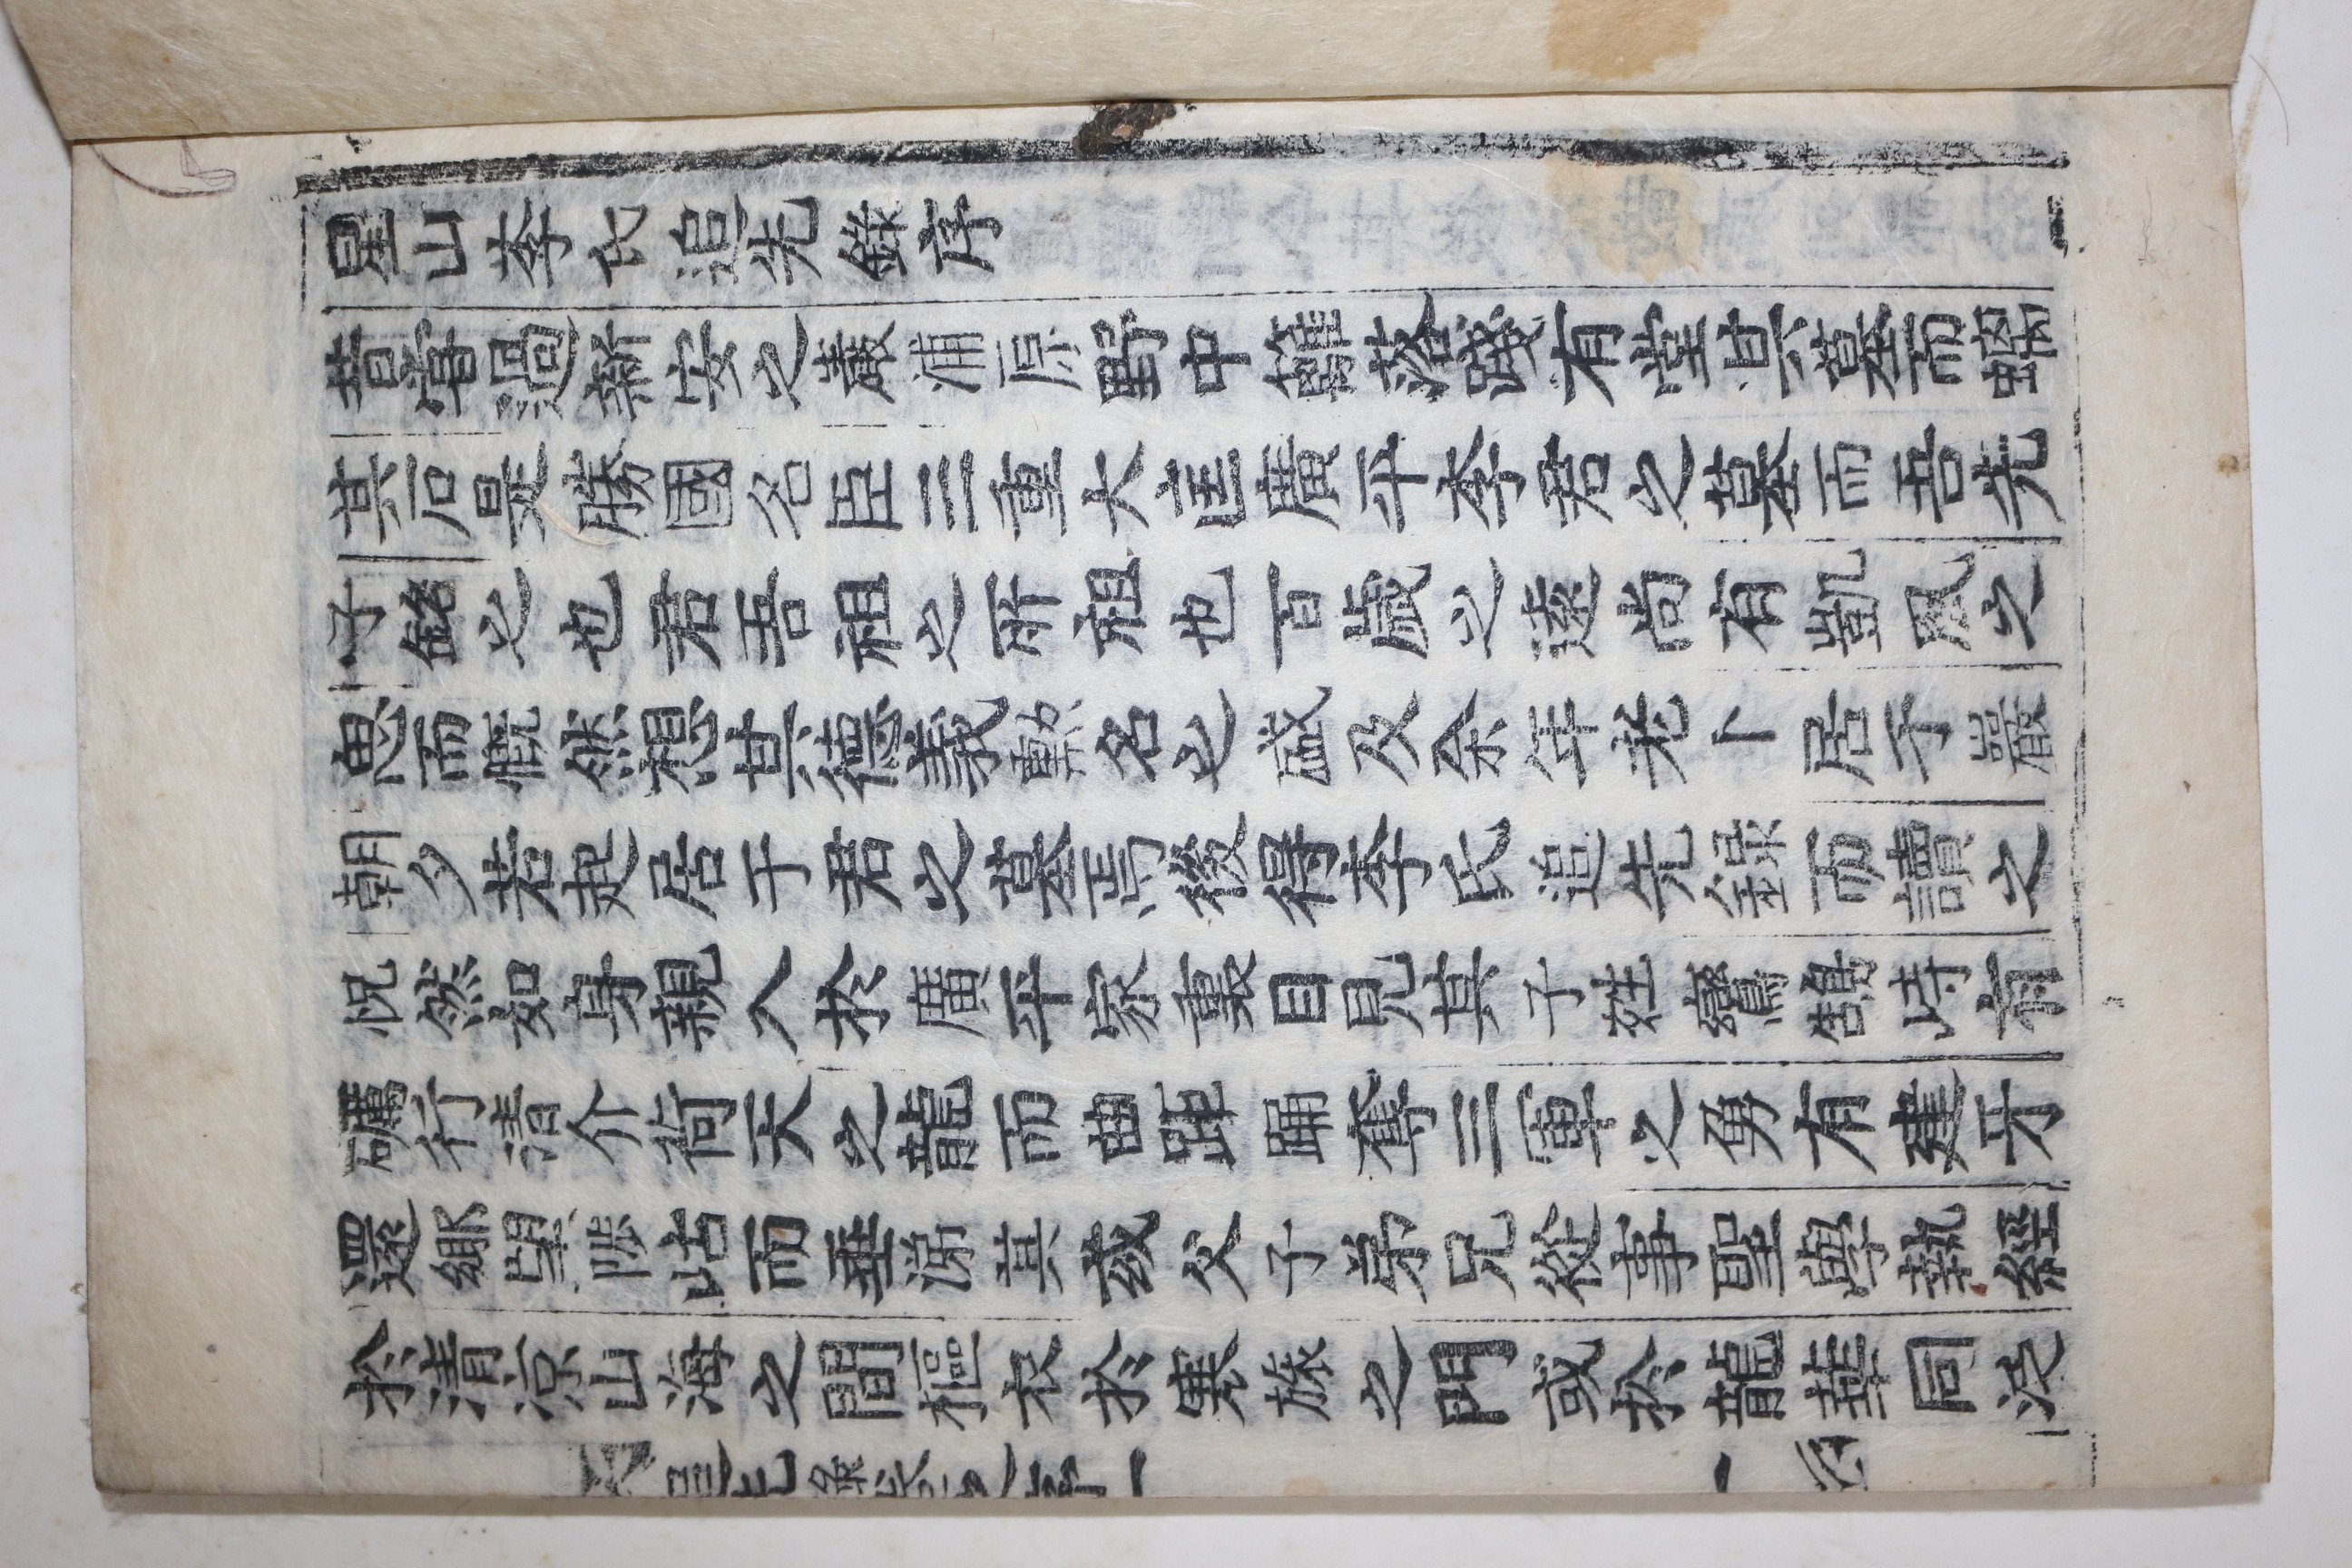 星山李氏追先錄序
昔嘗過新安之巖浦原野中籬落踐有堂其墓而螭
其石是勝國名臣三重大匡廣平李君之墓而吾先
子銘之也君吾祖之所祖也百歲之遠尚有凱風之
思而慨然想其德義勲名之盛及余年老卜居于巖
朝夕若起居于君之墓焉後得李氏追先錄而讀之
怳然如身親入於廣平家裏目見其子姓鸞鵠峙有
礪行清介荷天之龍而曲距踊奪三軍之勇有建牙
還鄉望陟岵而垂涕其或父子弟兄從事聖學執經
於清凉山海之間樞衣於寒旅之門或於龍華同泛